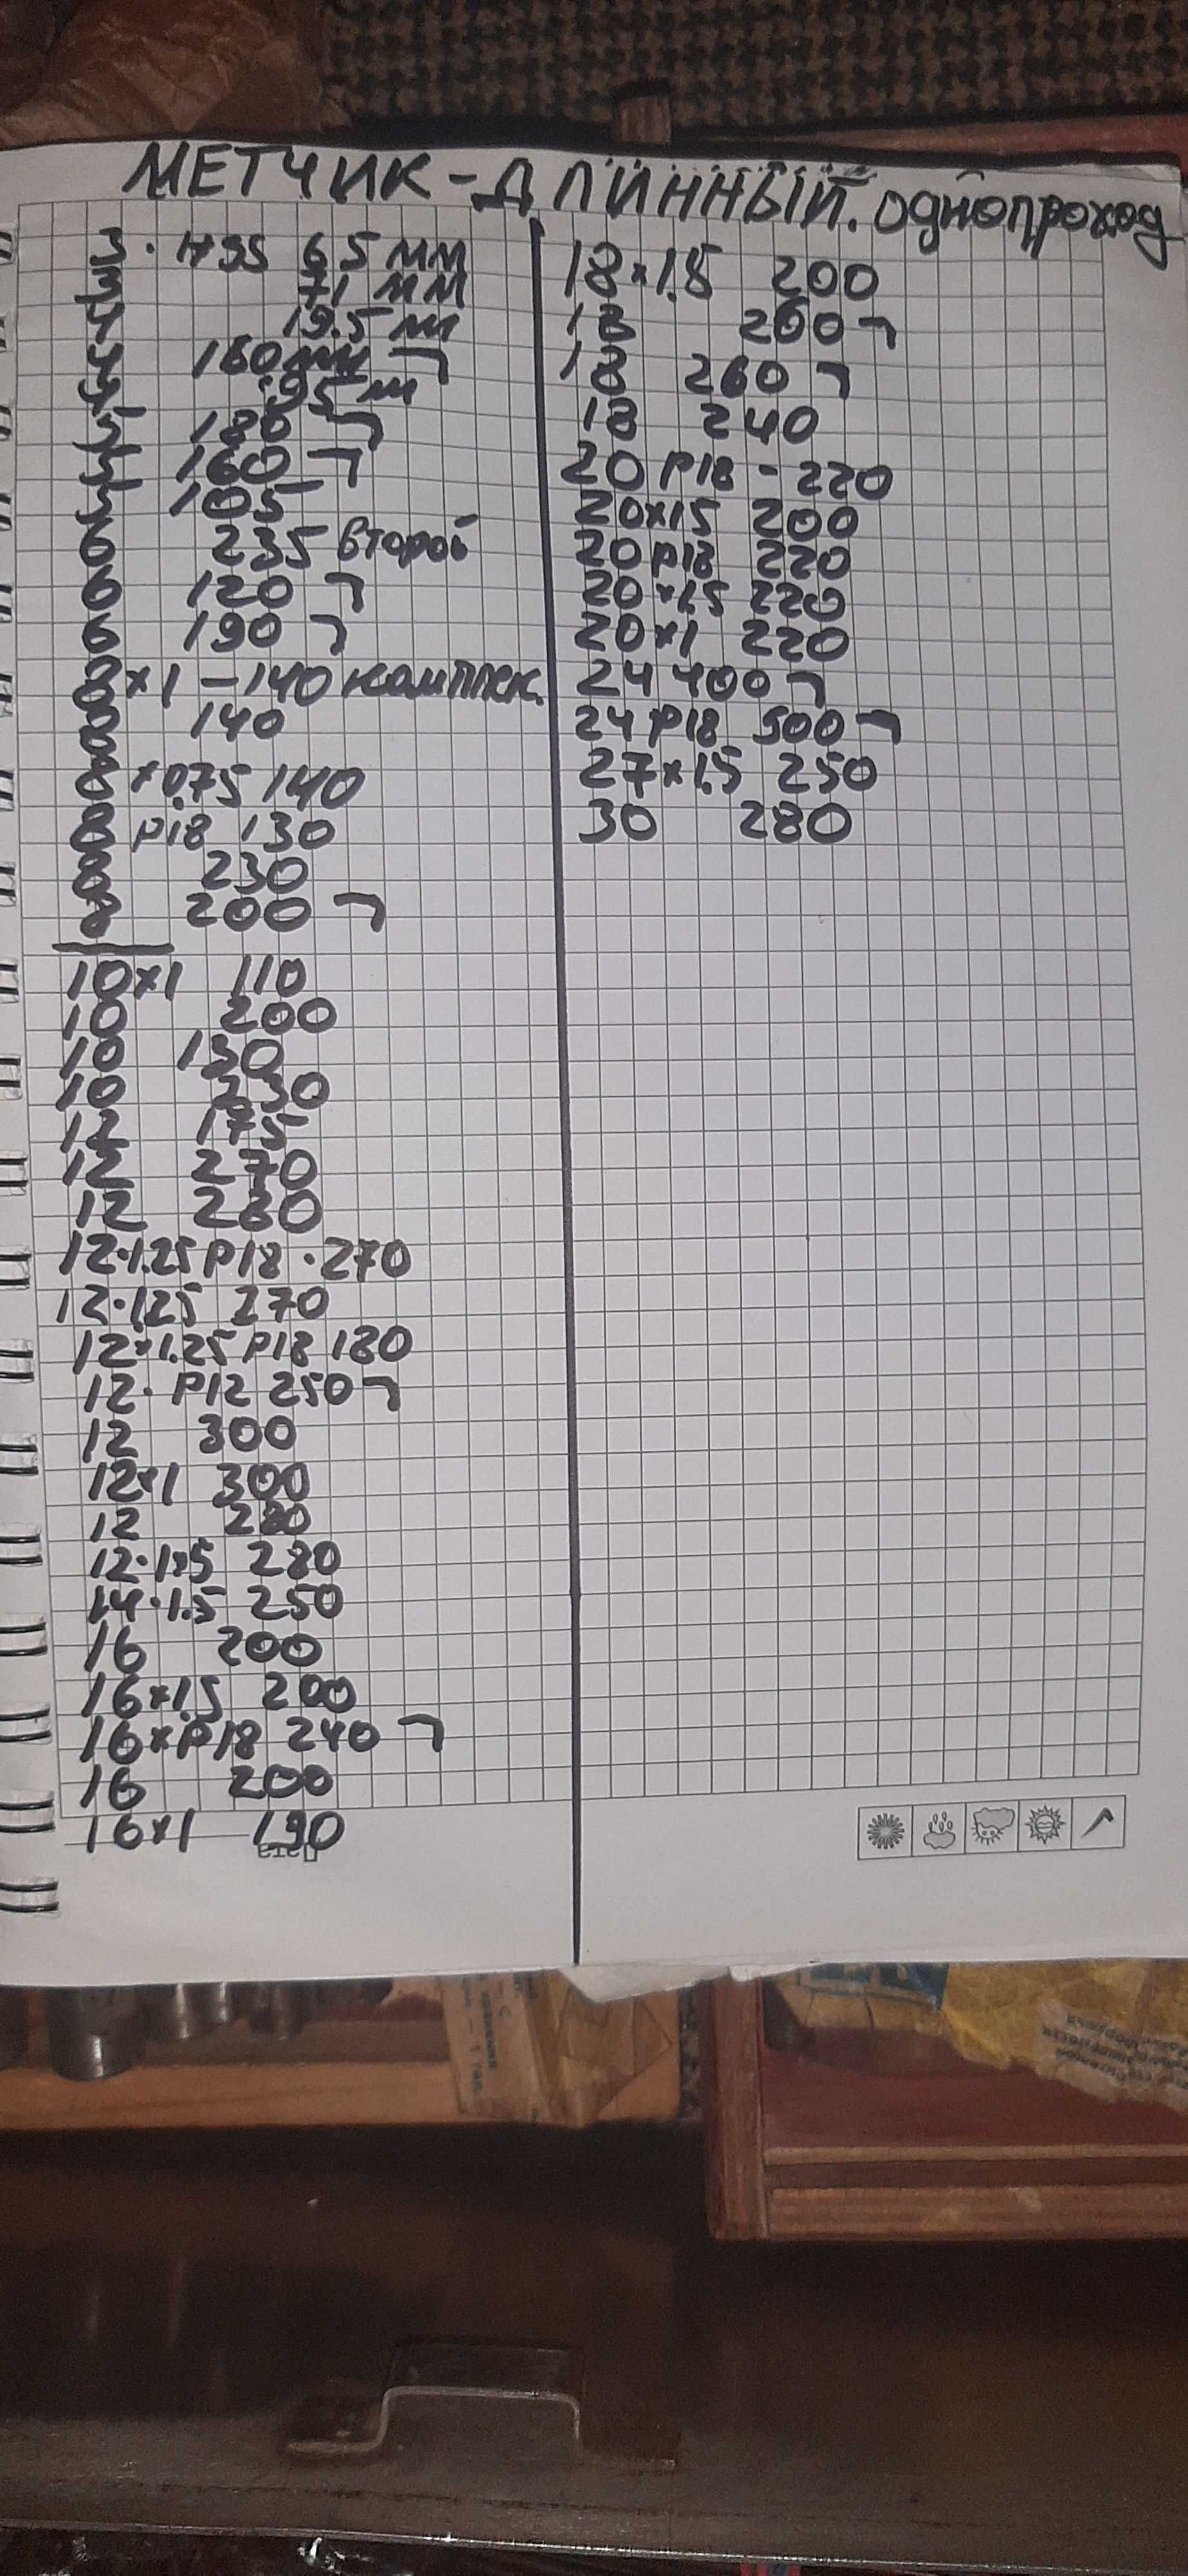 МЕТЧИК-ДЛИННЫЙ. однопроход
3 · HSS 65 мм
3 71 мм
4 19.5 м
4 160 мм ㄱ
4 195 м
5 180 ㄱ
5 160 ㄱ
5 105
6 235 второй
6 120 ㄱ
6 190 ㄱ
8×1 – 140 комплек.
8 140
8 ×0.75 140
8 Р18 130
8 230
8 200 ㄱ
10×1 110
10 200
10 130
10 230
12 175
12 270
12 280
12·1.25 Р18 · 270
12·125 270
12×1.25 Р18 180
12· Р12 250 ㄱ
12 300
12×1 300
12 280
12·1.25 280
14·1.5 250
16 200
16×1.5 200
16×Р18 240 ㄱ
16 200
16×1 190
Дата
18×1.5 200
18 260 ㄱ
18 260 ㄱ
18 240
20 Р18 - 220
20×15 200
20 Р18 220
20×1.5 220
20×1 220
24 400 ㄱ
24 Р18 300 ㄱ
27×1.5 250
30 280